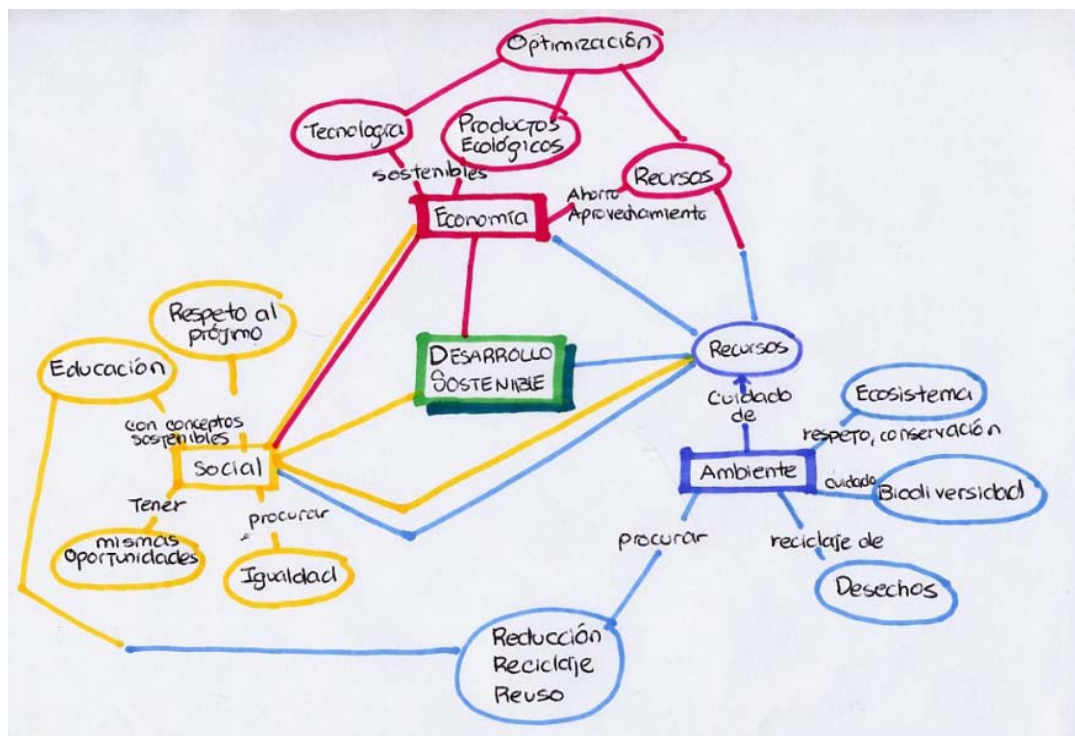 Optimización
Tecnología
Productos
Ecológicos
sostenibles
Recursos
Economía
Ahorro
Aprovechamiento
Respeto al
prójimo
Educación
DESARROLLO
SOSTENIBLE
Recursos
con conceptos
sostenibles
Cuidado
de
Ecosistema
respeto, conservación
Social
Ambiente
cuidado
Biodiversidad
Tener
mismas
Oportunidades
procurar
Igualdad
procurar
reciclaje de
Desechos
Reducción
Reciclaje
Reuso